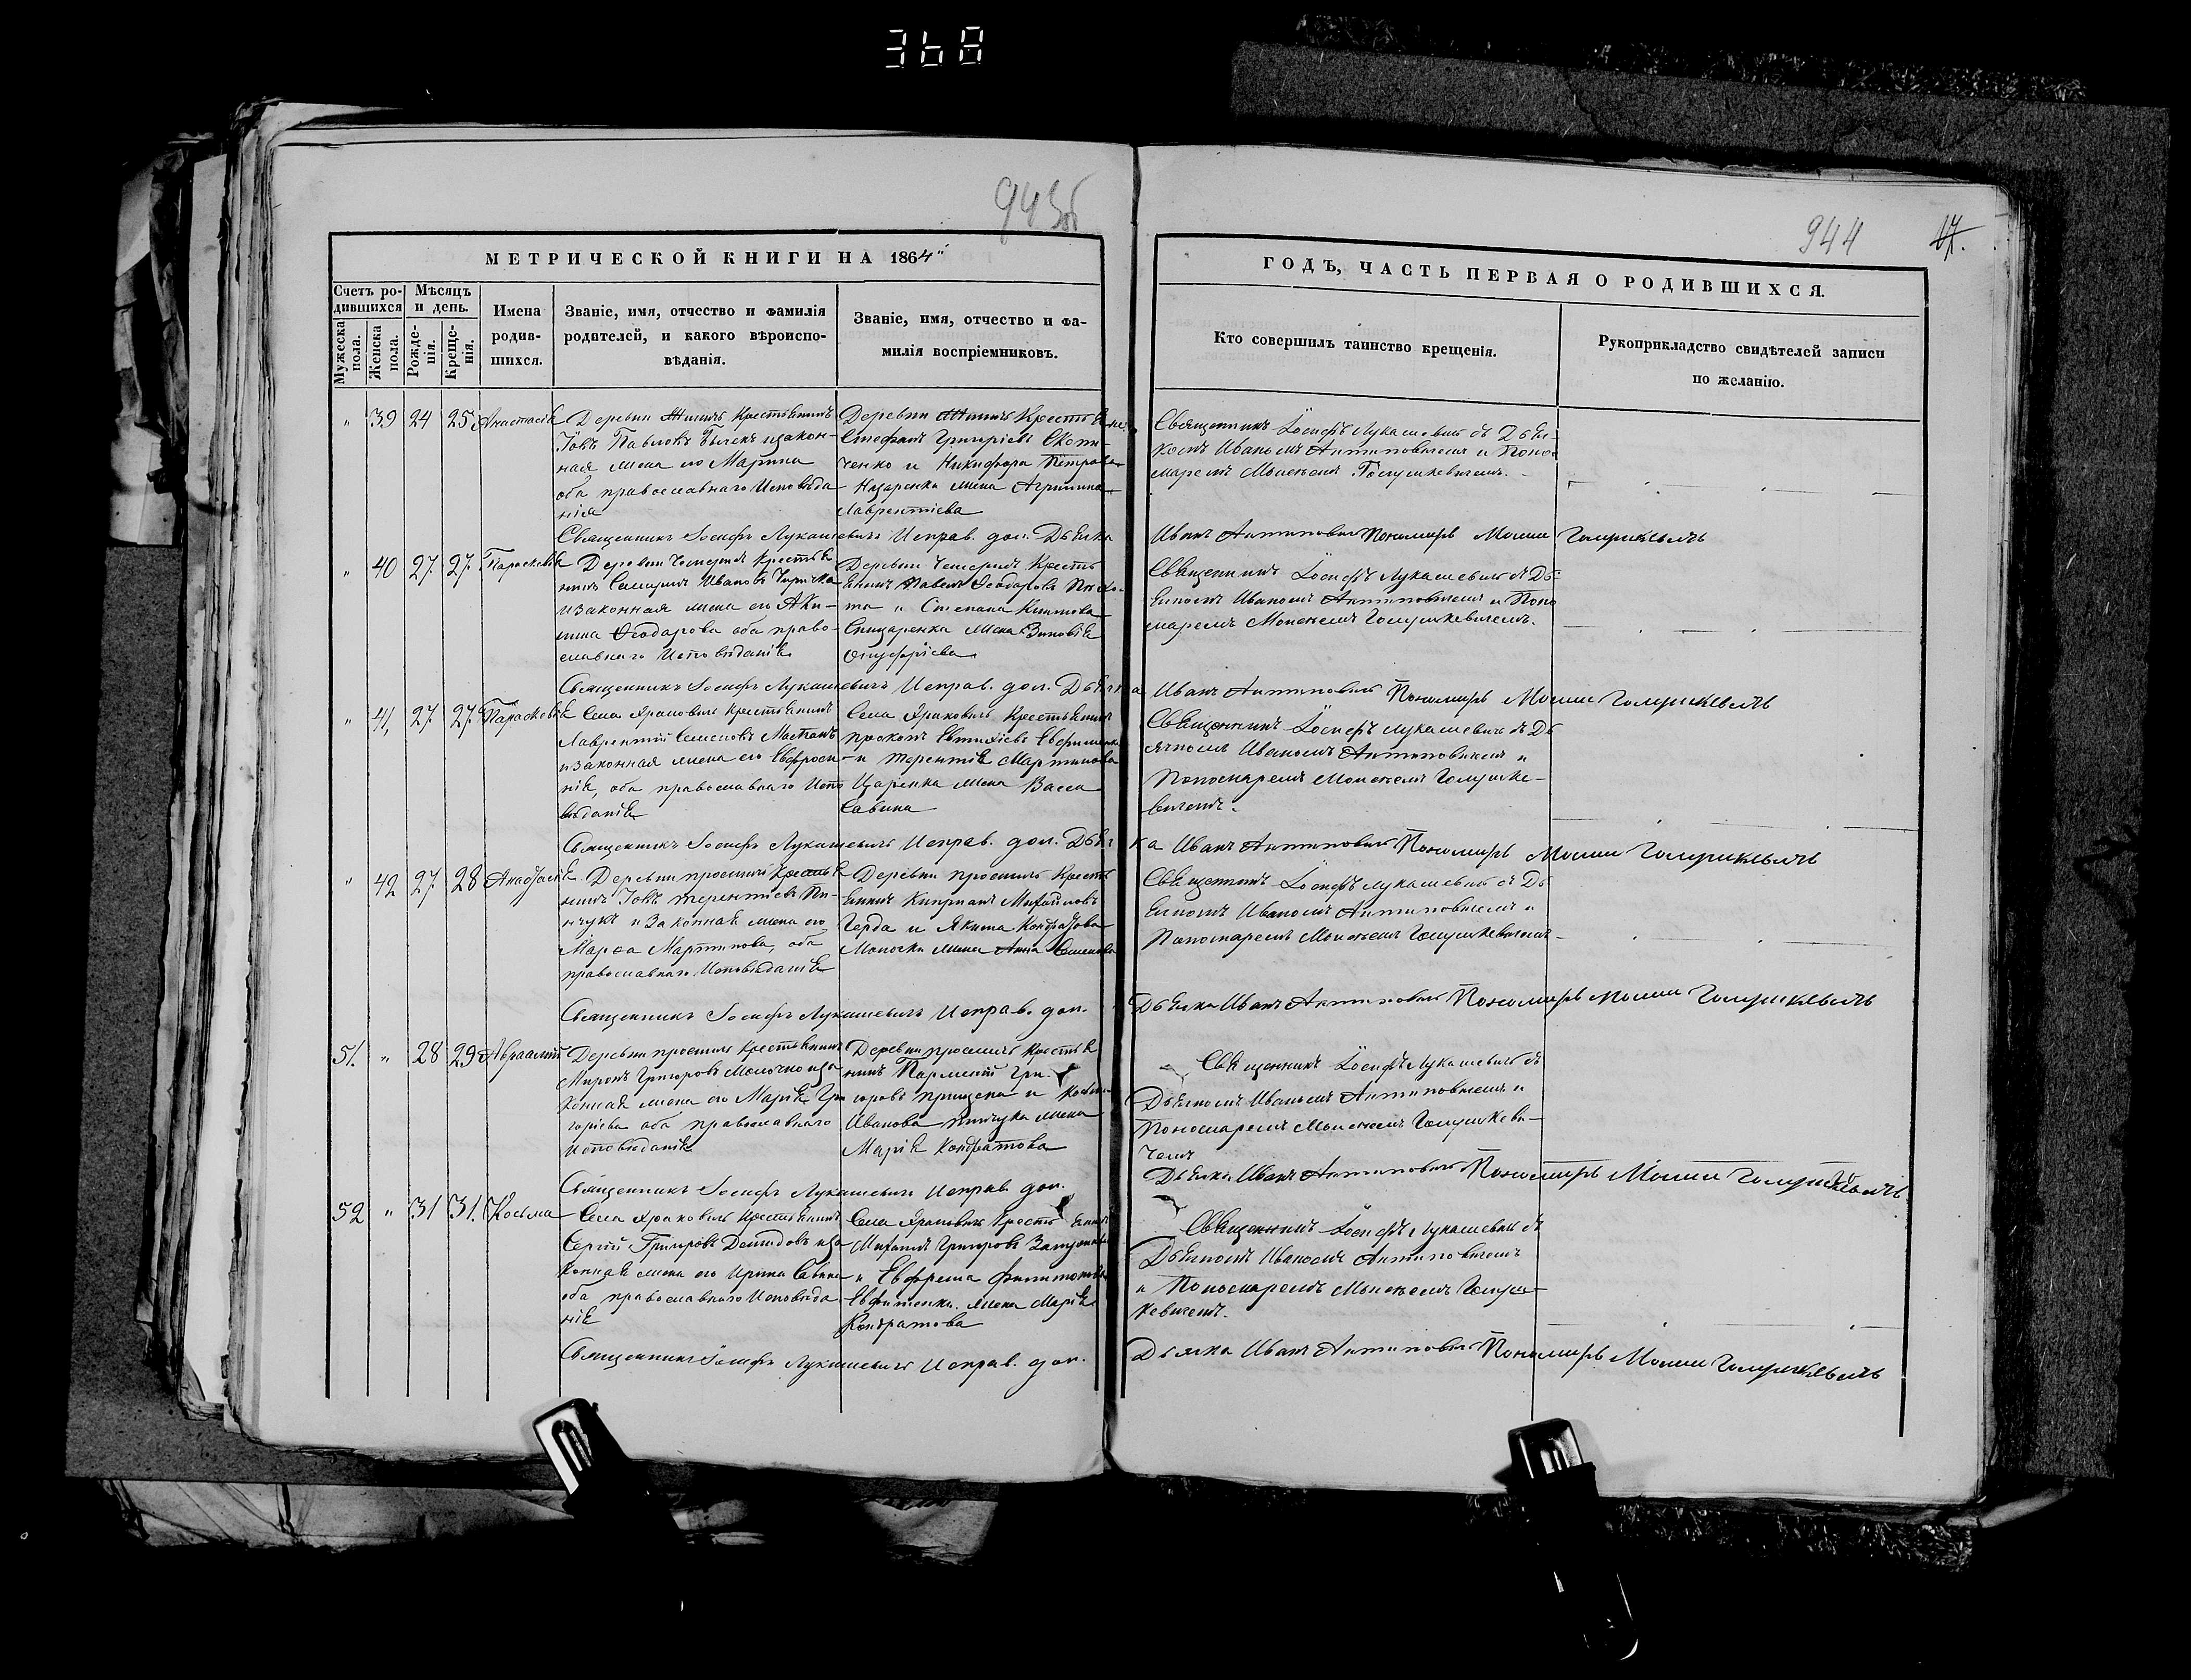 368
943об
944
17.
МЕТРИЧЕСКОЙ КНИГИ НА 1864
ГОДЪ, ЧАСТЬ ПЕРВАЯ О РОДИВШИХСЯ.
Счетъ ро-
дившихся
Мужеска
пола.
Женска
пола.
Мѣсяцъ
и день.
Рожде-
нія.
Креще-
нія.
Имена
родив-
шихся.
Званіе, имя, отчество и фамилія
родителей, и какого вѣроиспо-
вѣданія.
Званіе, имя, отчество и фа-
милія воспріемниковъ.
Кто совершилъ таинство крещенія.
Рукоприкладство свидѣтелей записи
по желанію.
" 39 24 25 Анастасія
Деревни Крестьянинъ
Іовъ Павловъ изакон-
ная жена его Марина
оба православнаго Исповѣда
нія
Деревни Крестьяне
Стефанъ Григоріевъ
ченко и Никифора Петрова
Назаренка жена Агрипина
Лаврентіева
Священникъ Іосифъ Лукашевичъ съ Дья-
комъ Иваномъ Антиповичемъ и Поно-
маремъ Моисеемъ Голушкевичемъ.
Священникъ Іосифъ Лукашевичъ Исправ. дол. Дьячка Иванъ Антиповичъ Пономарь Моисей Голушкевичъ
" 40 27 27 Параскевія
Деревни Чемеринъ Крестья
нинъ Иванов
изаконная жена его Аки-
лина Ѳеодорова оба право-
славнаго Исповѣданія
Деревни Чемеринъ Кресть
янинъ Павелъ Ѳеодоровъ
та и Степана
жена Зиновія
Онуфріева
Священникъ Іосифъ Лукашевичъ съ Дь-
ячкомъ Иваномъ Антиповичемъ и Поно
маремъ Моисеемъ Голушкевичемъ.
Священникъ Іосифъ Лукашевичъ Исправ. дол. Дьячка Иванъ Антиповичъ Пономарь Моисей Голушкевичъ
" 41, 27 27 Параскевія
Села Храковичъ Крестьянинъ
Лаврентій Семеновъ
изаконная жена его Евфроси
нія, оба православнаго Испо
вѣданія
Села Храковичъ Крестьянинъ
Прокопъ Евтихіевъ Евфименко
и Терентія Мартинова
Царенка жена Васса
Савина
Священникъ Іосифъ Лукашевичъ съ Дь
ячкомъ Иваномъ Антиповичемъ и
Пономаремъ Моисеемъ Голушке-
вичемъ.
Священникъ Іосифъ Лукашевичъ Исправ. дол. Дьячка Иванъ Антиповичъ Пономарь Моисей Голушкевичъ
" 42 27 28
Деревни просмичъ Крестья
нинъ Іовъ Терентіевъ Пи-
нчукъ и Законная жена его
Марѳа Мартинова, оба
православнаго Исповѣданія
Деревни просмичъ Кресть
янинъ Кипріанъ Михайловъ
Герда и Якима Кондратова
жена Анна Семенова
Священникъ Іосифъ Лукашевичъ съ Дь
ячкомъ Иваномъ Антиповичемъ и
Пономаремъ Моисеемъ Голушкевичемъ
Священникъ Іосифъ Лукашевичъ Исправ. дол. Дьячка Иванъ Антиповичъ Пономарь Моисей Голушкевичъ
51. " 28 29 Авраамій
Деревни просмичъ Крестьянинъ
Миронъ Григоровъ Молочко иза
конная жена его Марія Гри
горіева оба православнаго
Исповѣданія
Деревни просмичъ Крестья
нинъ Пармений Гри-
горовъ прищепа и
Иванова пинчука жена
Марія Кондратова
Священникъ Іосифъ Лукашевичъ съ
Дьячкомъ Иваномъ Антиповичемъ и
Пономаремъ Моисеемъ Голушкеви-
чемъ
Священникъ Іосифъ Лукашевичъ Исправ. дол. Дьячка Иванъ Антиповичъ Пономарь Моисей Голушкевичъ
52 " 31 31. Косьма
Села Храковичъ Крестьянинъ
Сергій Григоровъ Демидовъ иза
конная жена его Ирина Савина
оба православнаго Исповѣда
нія
Села Храковичъ Крестьянинъ
Михаилъ Григоровъ
и Ефрема Филимонова
Евфименка жена Марія
Кондратова
Священникъ Іосифъ Лукашевичъ съ
Дьячкомъ Иваномъ Антиповичемъ
и Пономаремъ Моисеемъ Голуш-
кевичемъ.
Священникъ Іосифъ Лукашевичъ Исправ. дол. Дьячка Иванъ Антиповичъ Пономарь Моисей Голушкевичъ